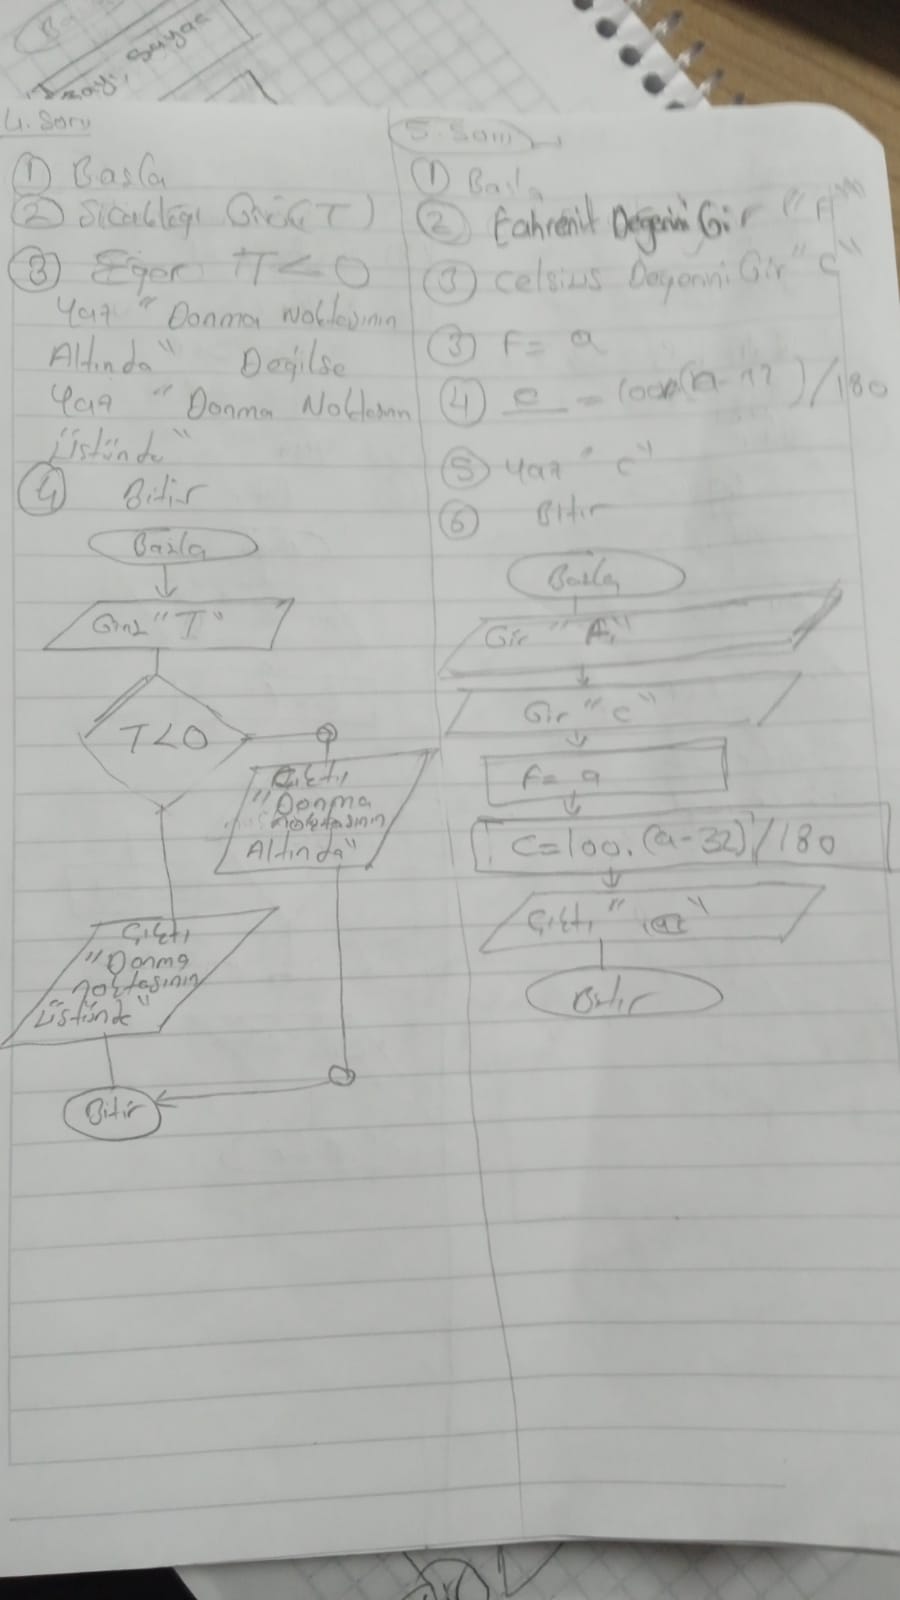 Sayaç
4. Soru
① Başla
② Sıcaklığı Gir (T)
③ Eğer T<0
Yaz "Donma Noktasının
Altında" Değilse
Yaz "Donma Noktasının
Üstünde"
④ Bitir
Başla
"T"
T<0
Çıktı
"Donma
noktasının
Altında"
Çıktı
"Donma
noktasının
Üstünde"
Bitir
5. Soru
① Başla
② Fahrenit Değerini Gir "F"
③ Celsius Değerini Gir "C"
③ F= a
④ C = 100 /180
⑤ Yaz "C"
⑥ Bitir
Başla
Gir
Gir "C"
F= a
C=100.(a-32)/180
Çıktı
Bitir